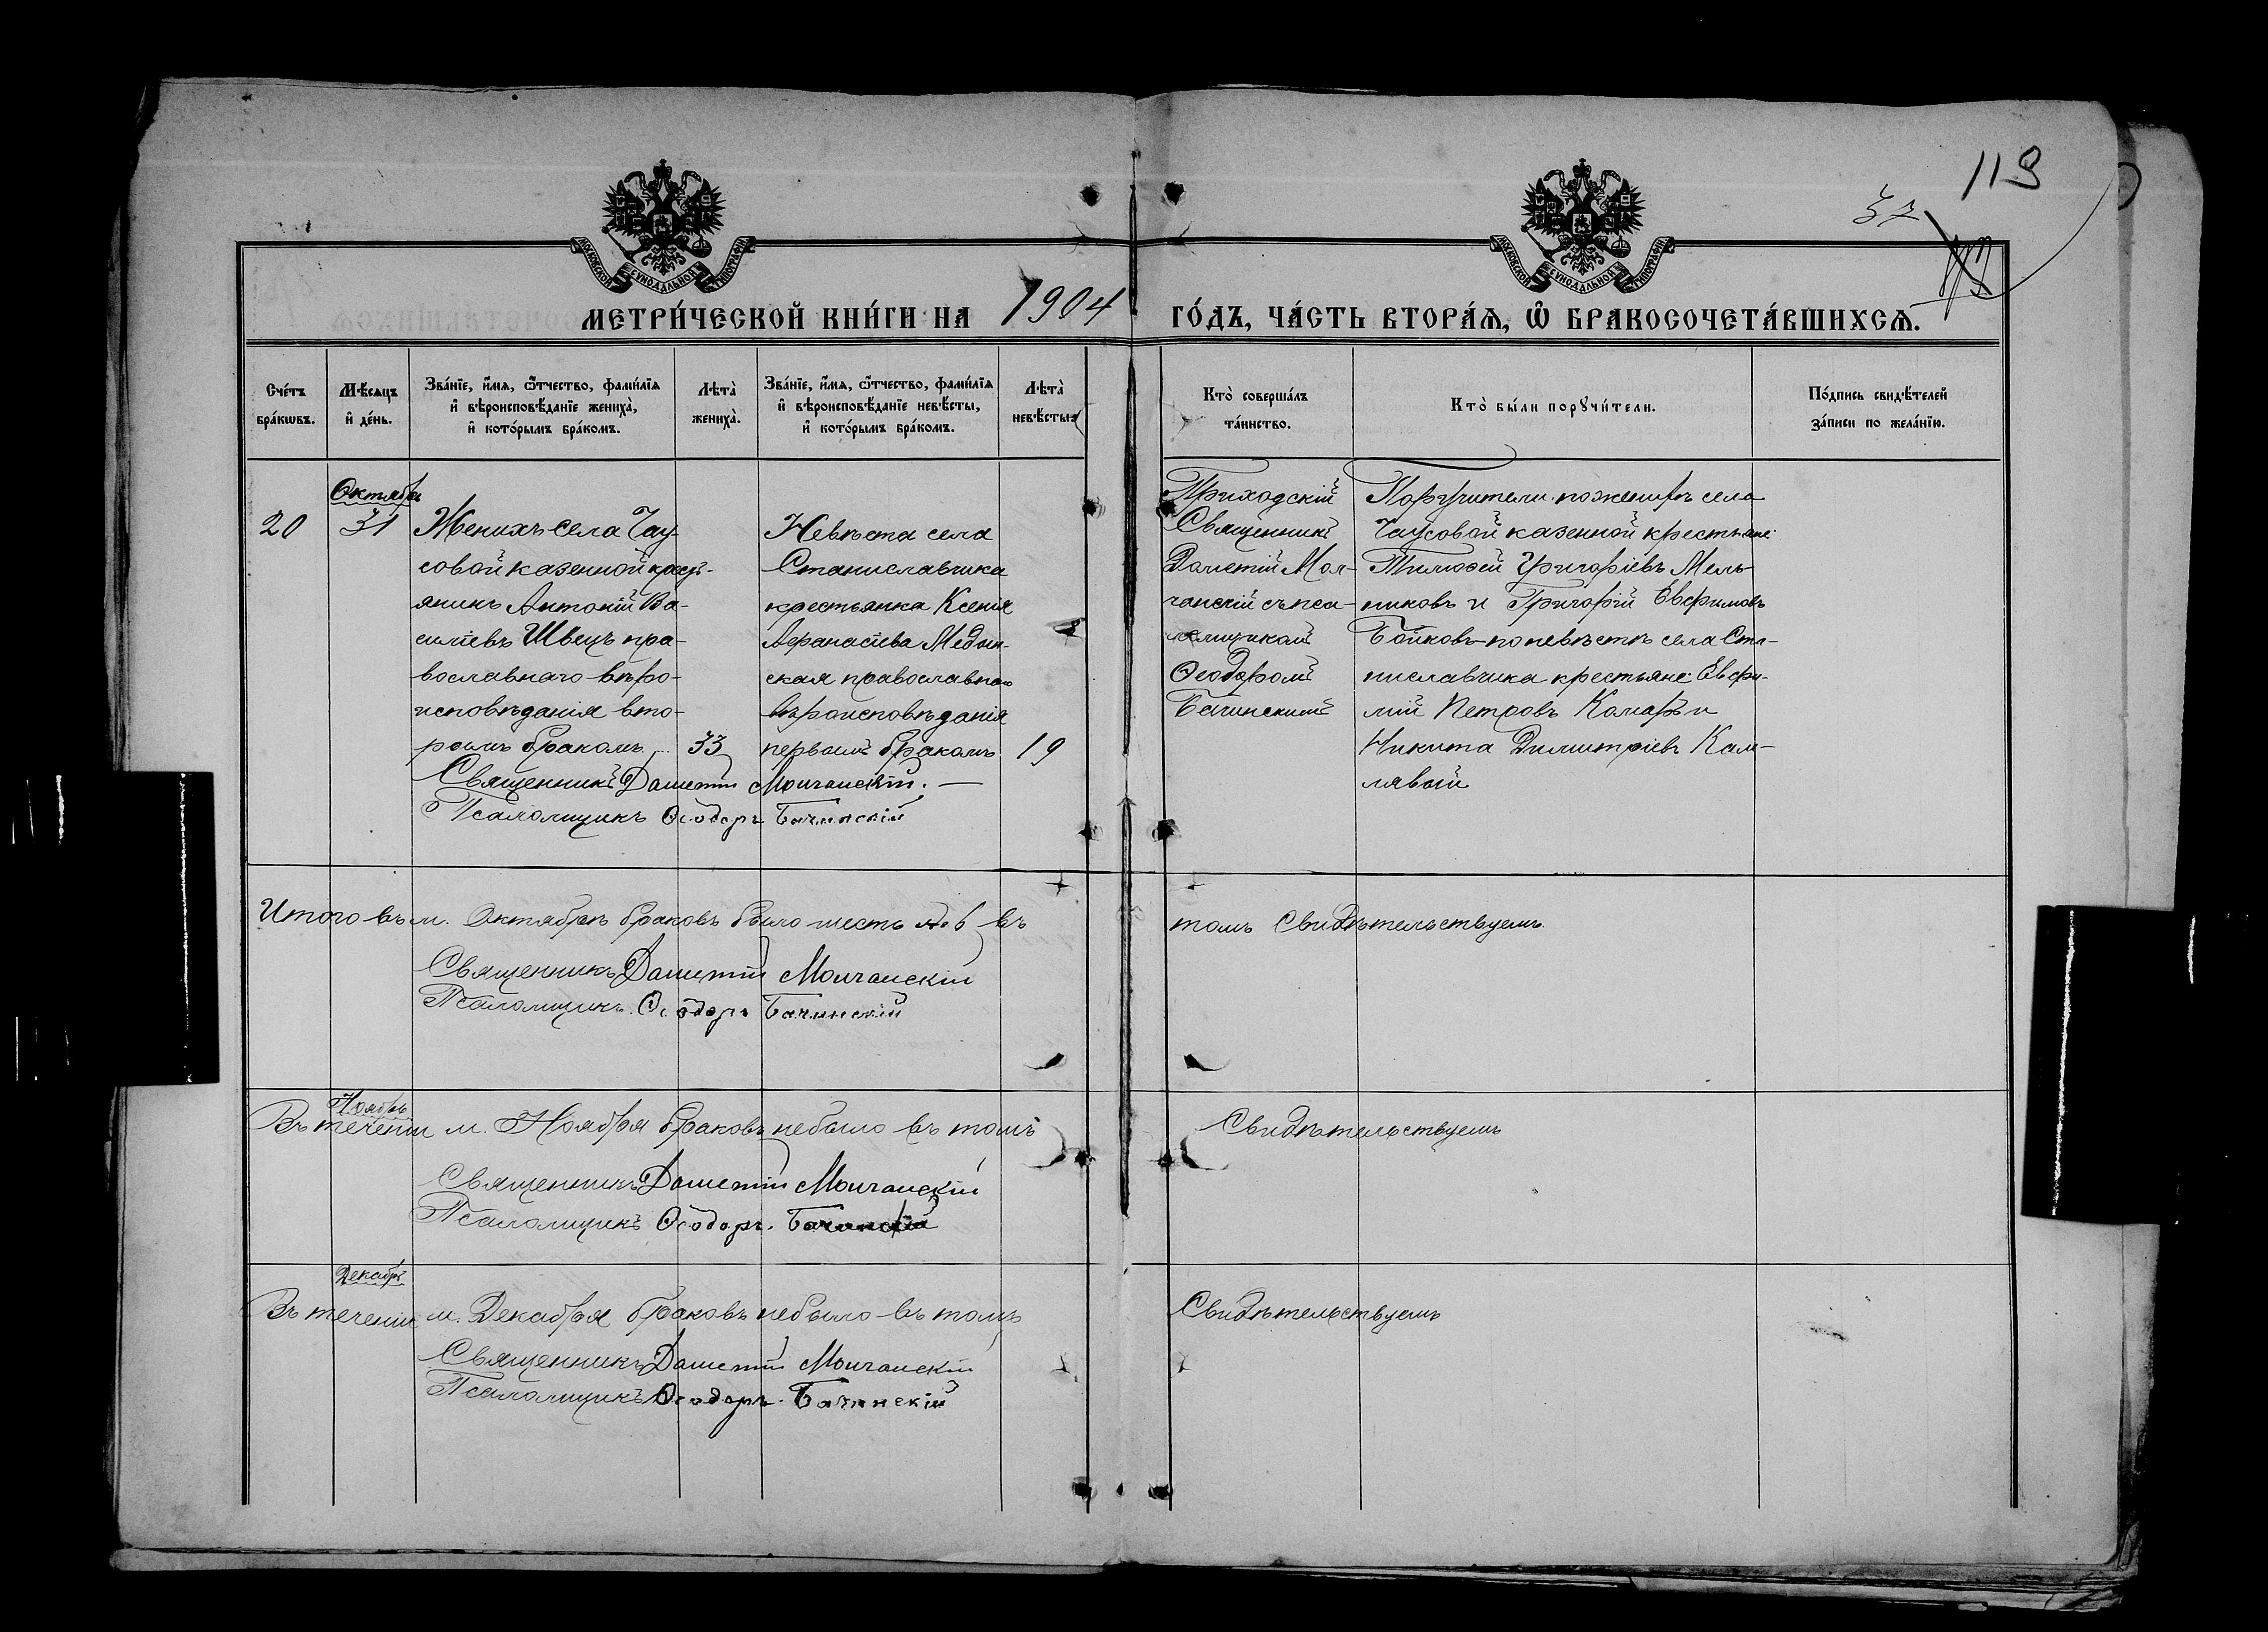 119
32
МОСКОВСКОЙ СѴНОДАЛЬНОЙ ТИПОГРАФІИ
МОСКОВСКОЙ СѴНОДАЛЬНОЙ ТИПОГРАФІИ
МЕТРИ́ЧЕСКОЙ КНИ́ГИ НА 1904 ГО́ДЪ, ЧА́СТЬ ВТОРА́Ѧ, Ѡ҆ БРАКОСОЧЕТА́ВШИХСѦ.
Сче́тъ
бра́кѡвъ.
Мѣ́сѧцъ
и҆ де́нь.
Зва́нїе, и҆́мѧ, ѻ҆́тчество, фами́лїѧ
и҆ вѣроисповѣ́данїе жениха̀,
и҆ кото́рымъ бра́комъ.
Лѣта̀
жениха̀.
Зва́нїе, и҆́мѧ, ѻ҆́тчество, фами́лїѧ
и҆ вѣроисповѣ́данїе невѣ́сты,
и҆ кото́рымъ бра́комъ.
Лѣта̀
невѣ́сты.
Кто̀ соверша́лъ
та́инство.
Кто̀ бы́ли порꙋчи́тели.
По́дпись свидѣ́телей
за́писи по жела́нїю.
Октябрь
20
31
Женихъ села Чау-
совой казенной крестъ-
янинъ Антоній Ва-
силіевъ Швецъ пра-
вославнаго вѣро-
исповѣданія вто-
рымъ бракомъ
33
Невѣста села
Станиславчика
крестьянка Ксенія
Афанасіева Медын-
ская православнаго
вѣроисповѣданія
первымъ бракомъ
19
Священникъ Дометій Молчанскій. —
Псаломщикъ Ѳеодоръ Бачинскій
Приходскій
Священникъ
Дометій Мол-
чанскій съ пса-
ломщикомъ
Ѳеодоромъ
Бачинскимъ
Поручители по женихѣ села
Чаусовой казенной крестьяне:
Тимоѳей Григоріевъ Мель-
никовъ и Григорій Евфимовъ
Бойковъ – по невѣстѣ села Ста-
ниславчика крестьяне: Евфи-
мій Петровъ Комаръ и
Никита Димитріевъ Кам-
лявый
Итого въ м. Октябрѣ браковъ было шесть № 6 въ томъ Свидѣтельствуемъ.
Священникъ Дометій Молчанскій
Псаломщикъ Ѳеодоръ Бачинскій
Ноябрь
Въ теченіи м. Ноября браковъ небыло въ томъ Свидѣтельствуемъ
Священникъ Дометій Молчанскій
Псаломщикъ Ѳеодоръ. Бачинскій
Декабрь
Въ теченіи м. Декабря браковъ небыло въ томъ Свидѣтельствуемъ
Священникъ Дометій Молчанскій
Псаломщикъ Ѳеодоръ. Бачинскій